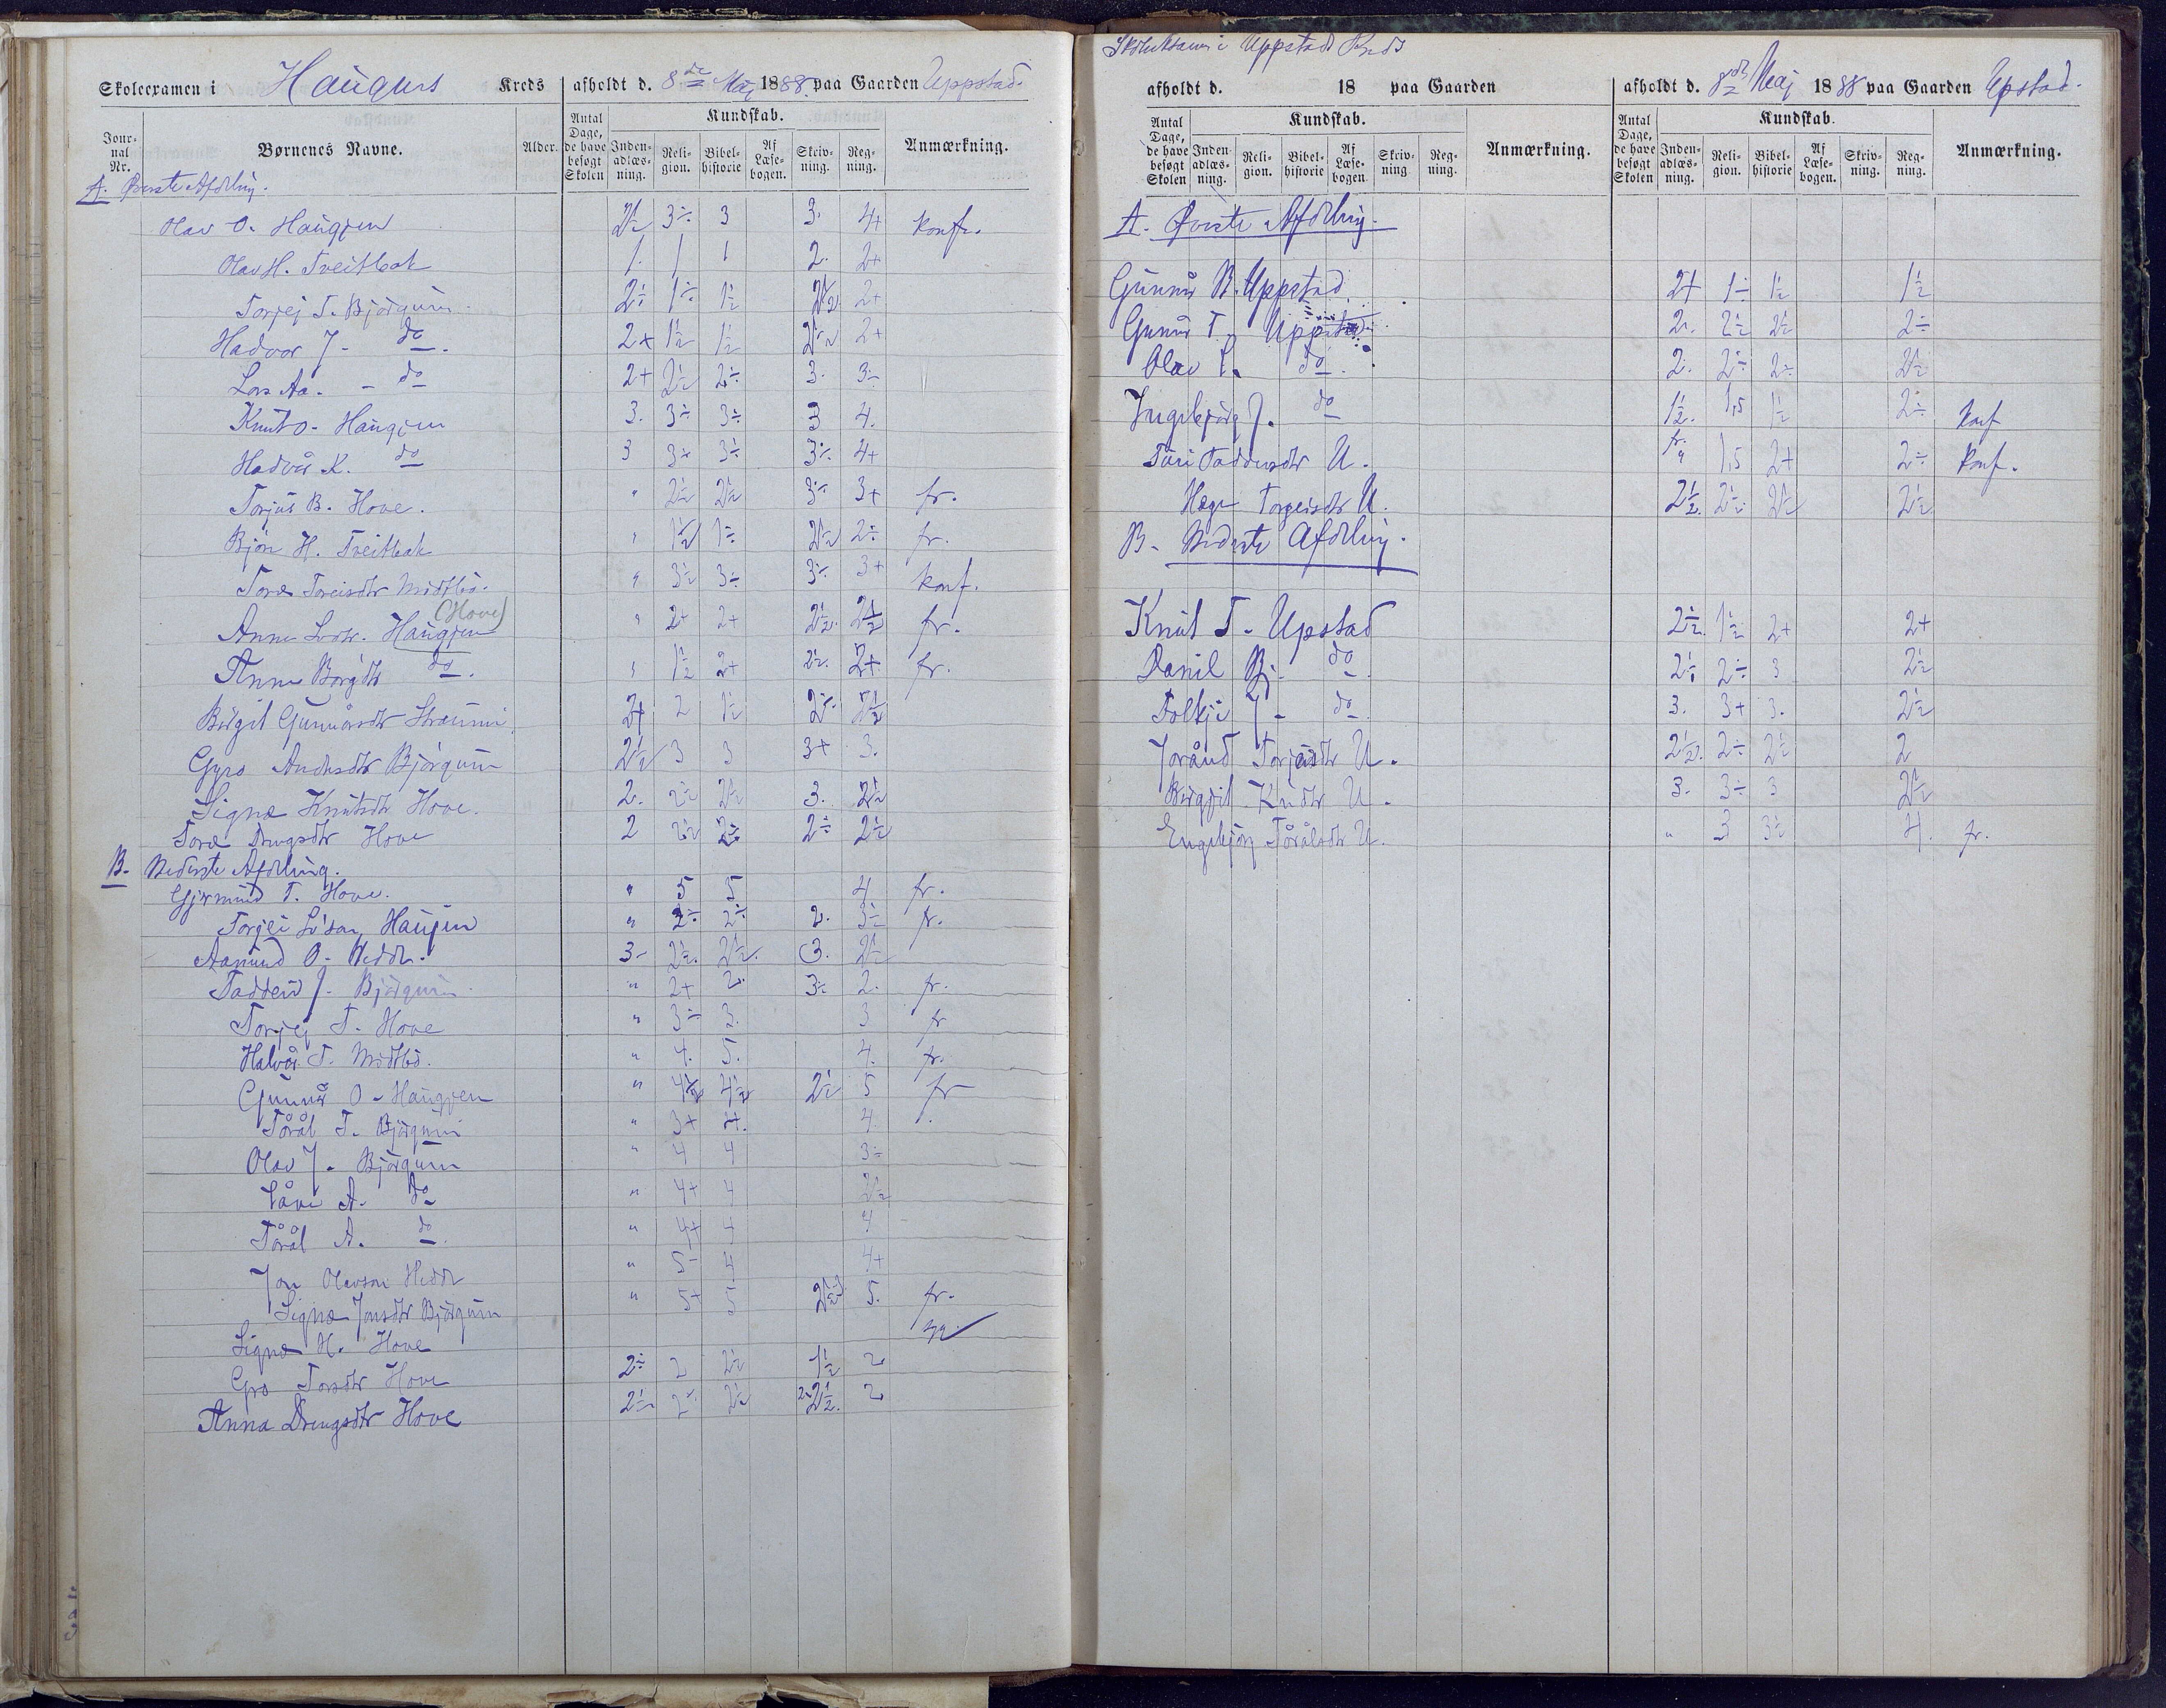 Skoleexamen i Haugens Kreds afholdt d. 8de Maj 1888. paa Gaarden Uppstad.
Jour-
nal
Nr.
Børnenes Navne.
Alder.
Antal
Dage,
de have
besøgt
Skolen
Kundskab.
Inden-
adlæs-
ning.
Reli-
gion.
Bibel-
historie
Af
Læse-
bogen.
Skriv-
ning.
Reg-
ning.
Anmærkning.
A. Øverste Afdeling.
Olav O. Haugjen 2½ 3÷ 3 3. 4+ konf.
Olav H. Tveitbak 1. 1 1 2. 2+
Torjej T. Bjørgum 2÷ 1÷ 1½ 2½ 2+
Hadvor J - do. 2+ 1½ 1½ 2½ 2+
Lars Aa. - do 2+ 2½ 2÷ 3. 3÷
Knut O. Haugjen 3. 3÷ 3÷ 3 4.
Hadvår K. do 3 3÷ 3÷ 3÷ 4+
Torjus B. Hove. " 2½ 2½ 3÷ 3+ fr.
Bjørn H. Tveitbak " 1½ 1÷ 2½ 2÷ fr.
Tore Toreisdtr Midtbø. " 3½ 3÷ 3÷ 3+ konf.
Anne Haugjen (Hove) " 2+ 2+ 2½. 2½ fr.
Anne do. " 1½ 2+ 2½. 2+ fr.
Birgit Gunnårsdtr Straumi 2+ 2 1½ 2÷ 2½
Gyro Andersdtr Bjørgum 2½ 3 3 3+ 3.
Signe Knutsdtr Hove. 2. 2½ 2½ 3. 2½
Tore Drengsdtr Hove 2 2½ 2÷ 2÷ 2½
B. Nederste Afdeling.
Gjermund T. Hove. " 5 5 4 fr.
Torjei Haujen " 2÷ 2÷ 2. 3÷ fr.
Aamund O. 3- 2½. 2½. 3. 2½
Taddeiv J. Bjørgum " 2+ 2. 3÷ 2. fr.
Torjej T. Hove " 3÷ 3. 3 fr
Halvår T. Midtbø. " 4. 5. 4. fr.
Gunnår O - Haugjen " 4½ 4½ 2½ 5 fr
Tårål T. Bjørgum " 3+ 4. 4.
Olav J. Bjørgum " 4 4 3÷
Såvi A. do " 4+ 4 2½
Tårål A. do. " 4+ 4 4
Jon Olavson " 5- 4 4+
Signe Jonsdtr Bjørgum " 5+ 5 2½ 5. fr.
Signe H. Hove syg
Gro Torsdtr Hove 2÷ 2 2½ 1½ 2
Anna Drengsdtr Hove 2½ 2÷ 2½ 2½. 2
Skoleksamen i Uppstads Kreds
afholdt d. 18 paa Gaarden
afholdt d. 8de Maj 1888 paa Gaarden Upstad.
Antal
Dage,
de have
besøgt
Skolen
Kundskab.
Inden-
adlæs-
ning.
Reli-
gion.
Bibel-
historie
Af
Læse-
bogen.
Skriv-
ning
Reg-
ning.
Anmærkning.
Antal
Dage,
de have
besøgt
Skolen
Kundskab.
Inden-
adlæs-
ning.
Reli-
gion.
Bibel-
historie
Af
Læse-
bogen.
Skriv-
ning.
Reg-
ning.
Anmærkning.
A. Øverste Afdeling.
Gunnår B. Uppstad. 2+ 1÷ 1½ 1½
Gunnår T. Uppstad. 2. 2½ 2½ 2÷
Olav T. do. 2. 2÷ 2÷ 2½
Ingebjørg J. do 1½. 1,5 1½ 2÷ konf
Turi Taddeusdtr U. fr. " 1,5 2+ 2÷ konf.
Hæge Torgeisdtr U. 2½. 2½ 2½ 2½
B. Nederste Afdeling.
Knut T. Upstad 2½. 1½ 2+ 2+
Danil Bj. do 2÷ 2÷ 3 2½
Folkje J - do 3. 3+ 3. 2½
Jorånd Torjusdtr U. 2½. 2÷ 2½ 2
Birgjit Knudtr U. 3. 3÷ 3 2½
Engebjørg Tårålsdtr U. " 3 3½ 4. fr.